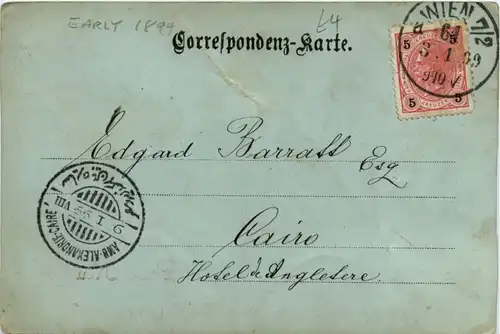 EARLY 1899
£4
Correspondenz-Karte.
WIEN 7/2
61
3.1.99
9-10 V
5 5
5 5
Edgard Barratt
Esq
Cairo
Hotel d'Angleterre.
AMB-ALEXANDRIE-CAIRE
9 I 99
VII